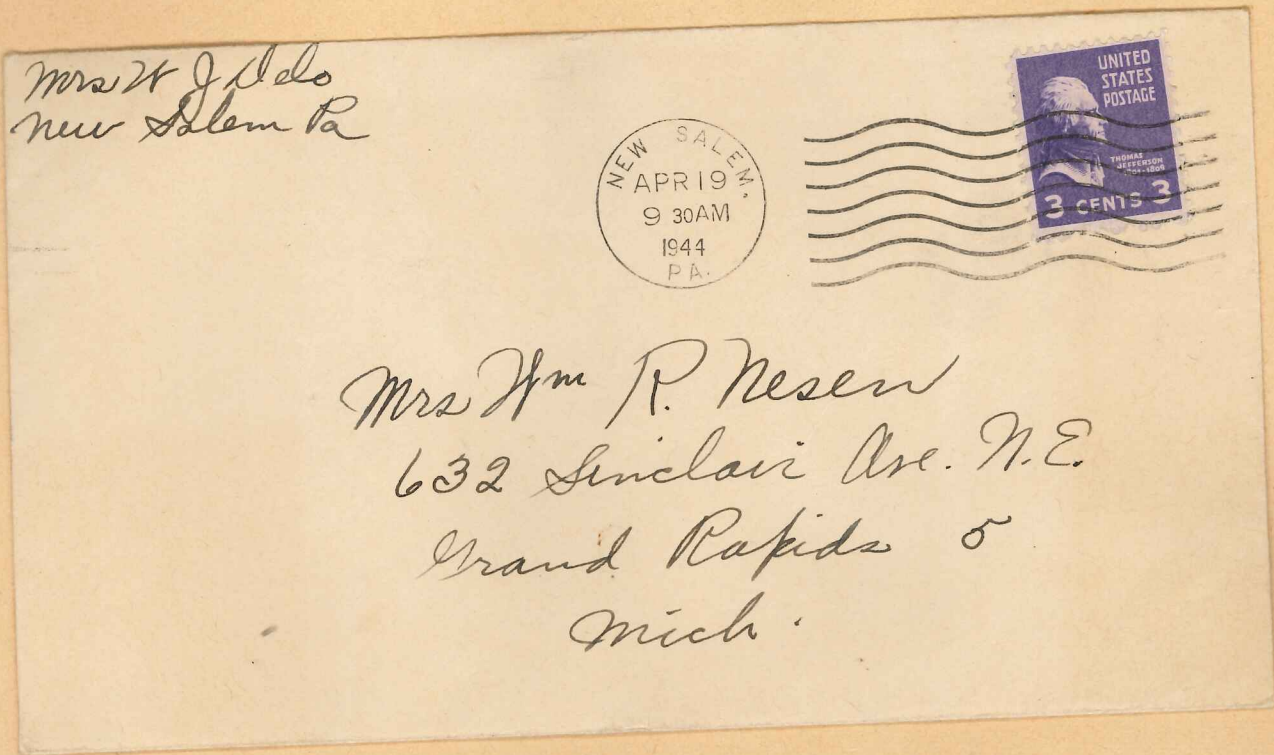 Mrs W J Delo
New Salem Pa
NEW SALEM,
APR 19
9 30AM
1944
PA.
UNITED
STATES
POSTAGE
THOMAS
JEFFERSON
1801-1809
3 CENTS 3
Mrs Wm R. Nesen
632 Sinclair Ave. N.E.
Grand Rapids 5
Mich.